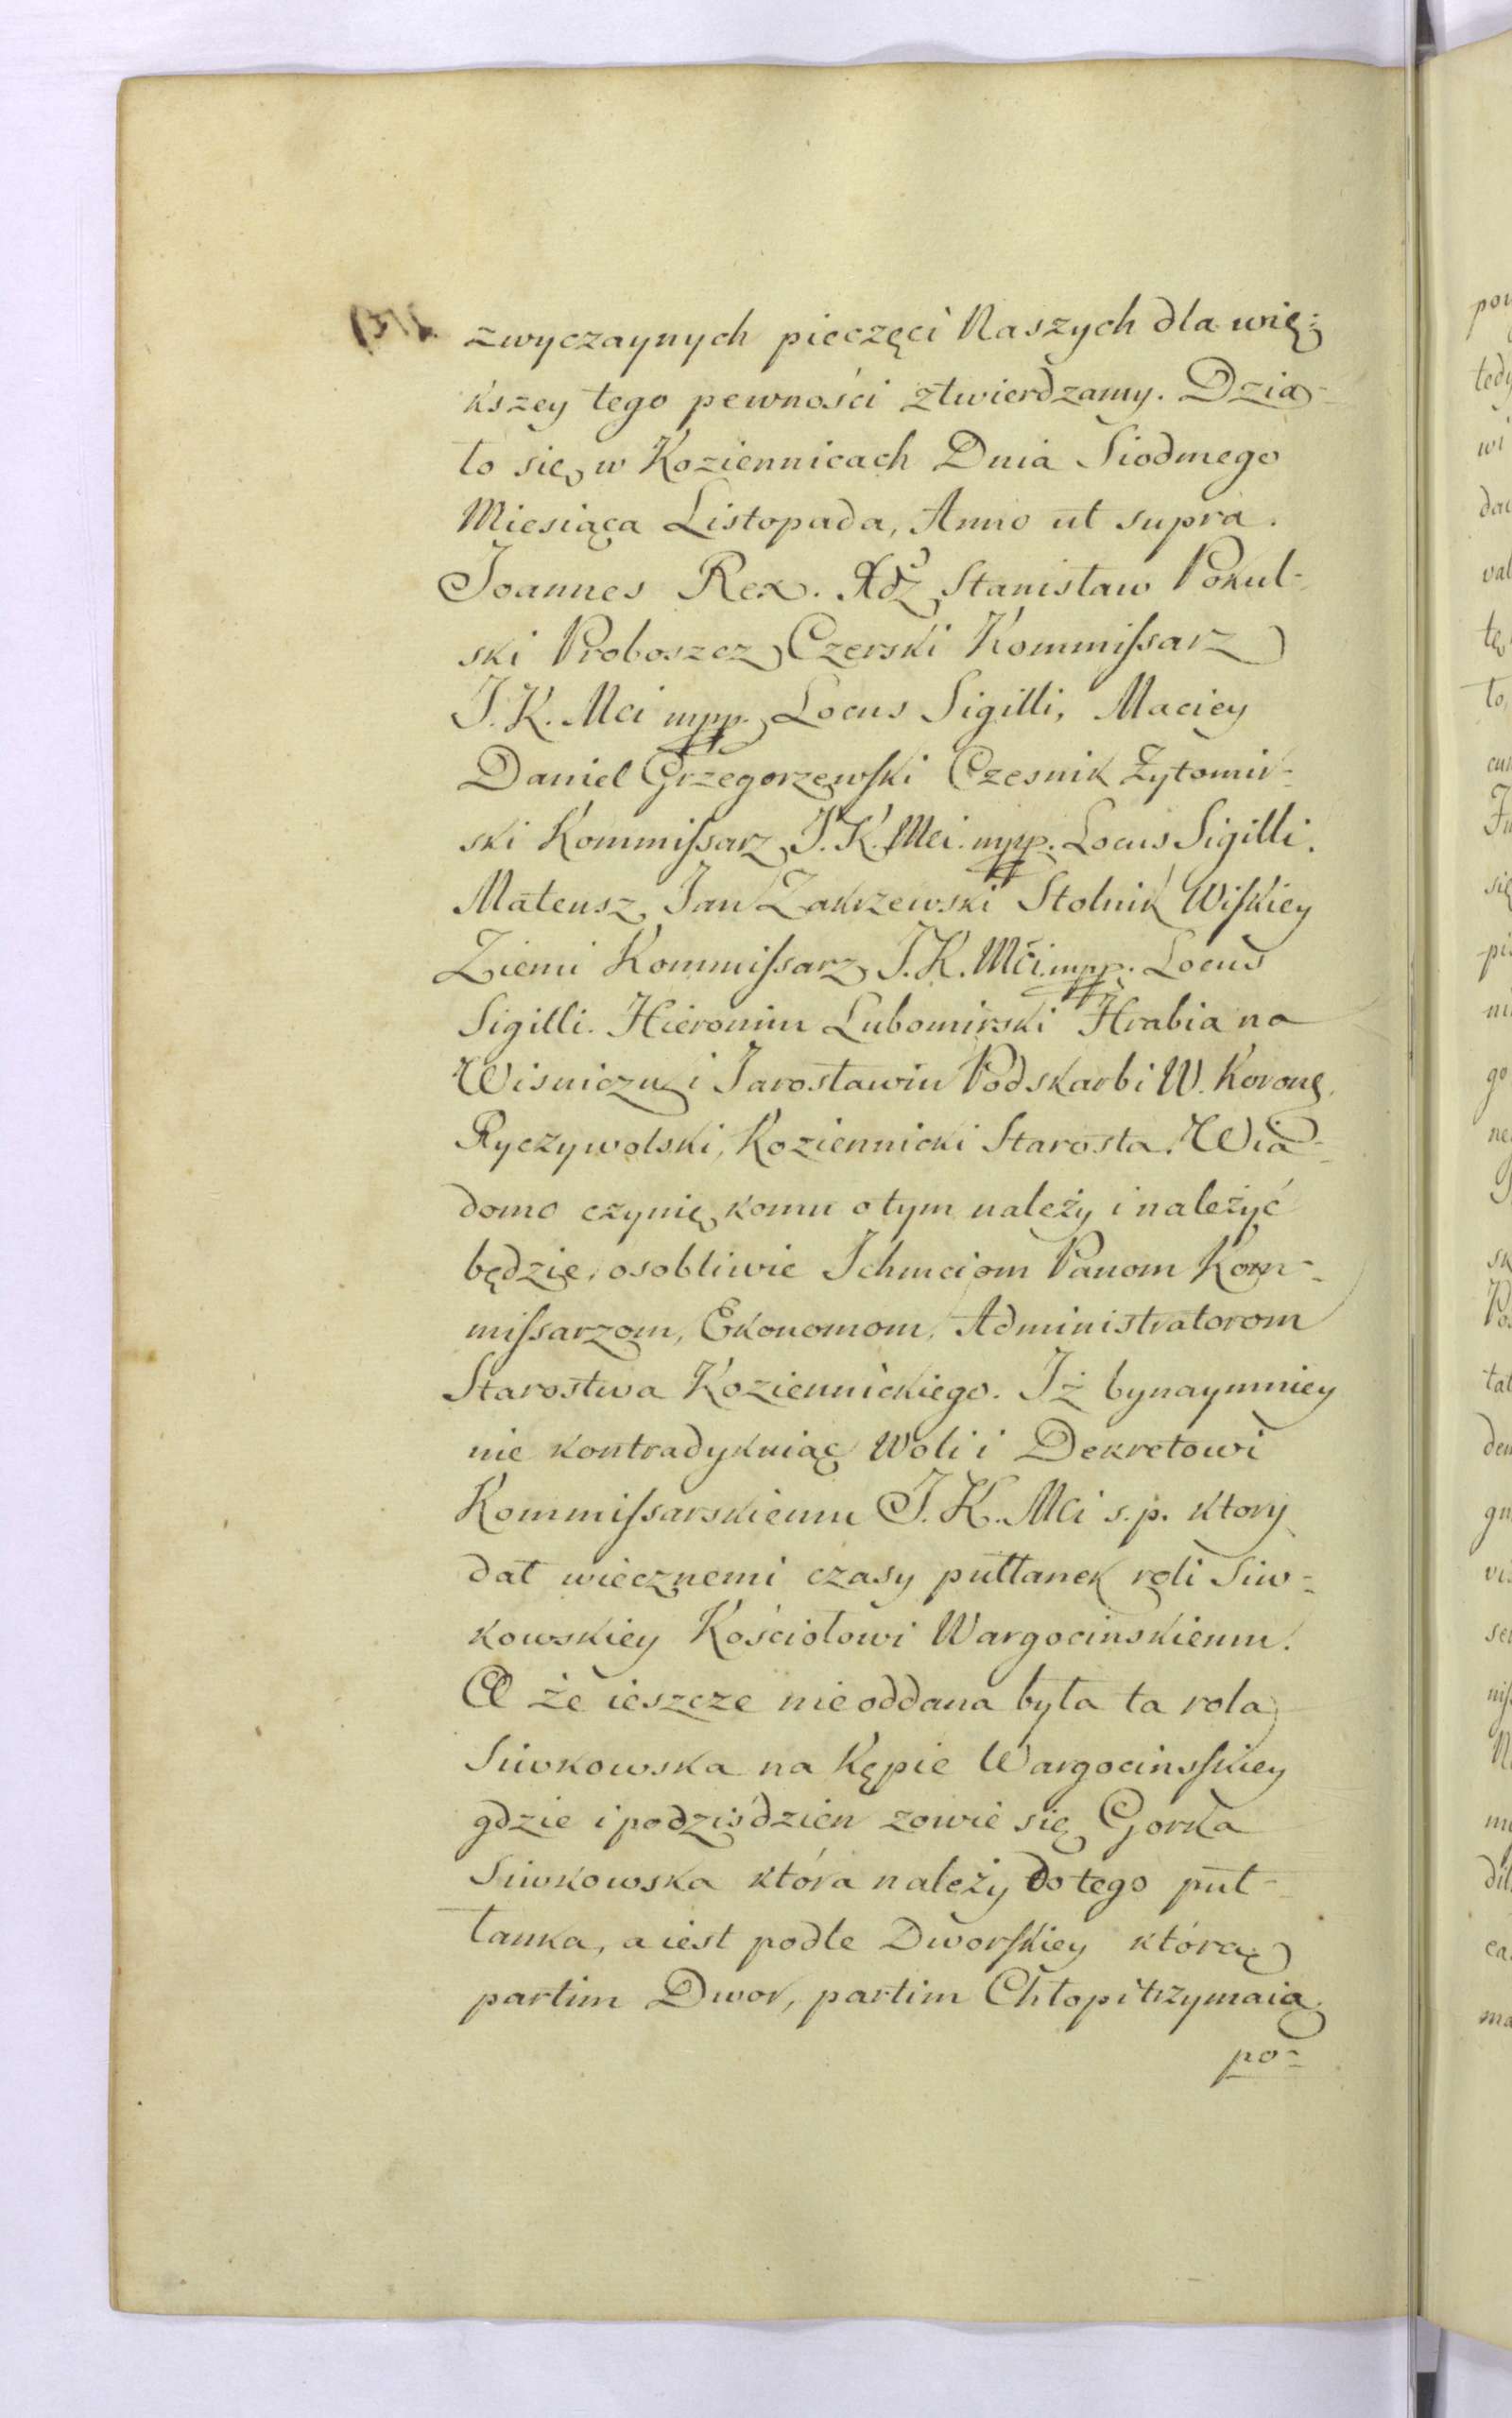 zwyczaynych pieczęci Naszych dla wię-
kszey tego pewności ztwierdzamy. Dzia-
ło się w Koziennicach Dnia Siodmego
Miesiąca Listopada, Anno ut supra.
Joannes Rex. Xdz Stanisław Pokul-
ski Proboszcz Czerski Kommissarz
J. K. Mci mpp. Locus Sigilli, Maciey
Daniel Grzegorzewski Czesnik Żytomir-
ski Kommissarz J. K. Mci. mpp. Locus Sigilli.
Mateusz Jan Zakrzewski Stolnik Wiskiey
Ziemi Kommissarz J. K. Mći. mpp. Locus
Sigilli. Hieronim Lubomirski Hrabia na
Wisniczu i Jarosławiu Podskarbi W. Koronę.
Ryczywolski, Koziennicki Starosta. Wia-
domo czynię komu o tym należy i należyć
będzie, osobliwie Ichmciom Panom Kom-
missarzom, Ekonomom, Administratorom
Starostwa Koziennickiego. Iż bynaymniey
nie kontradykuiąc Woli i Dekretowi
Kommissarskiemu J. K. Mci s. p. ktory
dał wiecznemi czasy półłanek roli Siw-
kowskiey Kościołowi Wargocinskiemu.
A że ieszcze nie oddana była ta rola
Siwkowska na Kępie Wargocinskiey
gdzie i podziśdzien zowie się Gorka
Siwkowska która należy do tego puł-
łanka, a iest podle Dworskiey którą
partim Dwor, partim Chłopi trzymaią.
po-